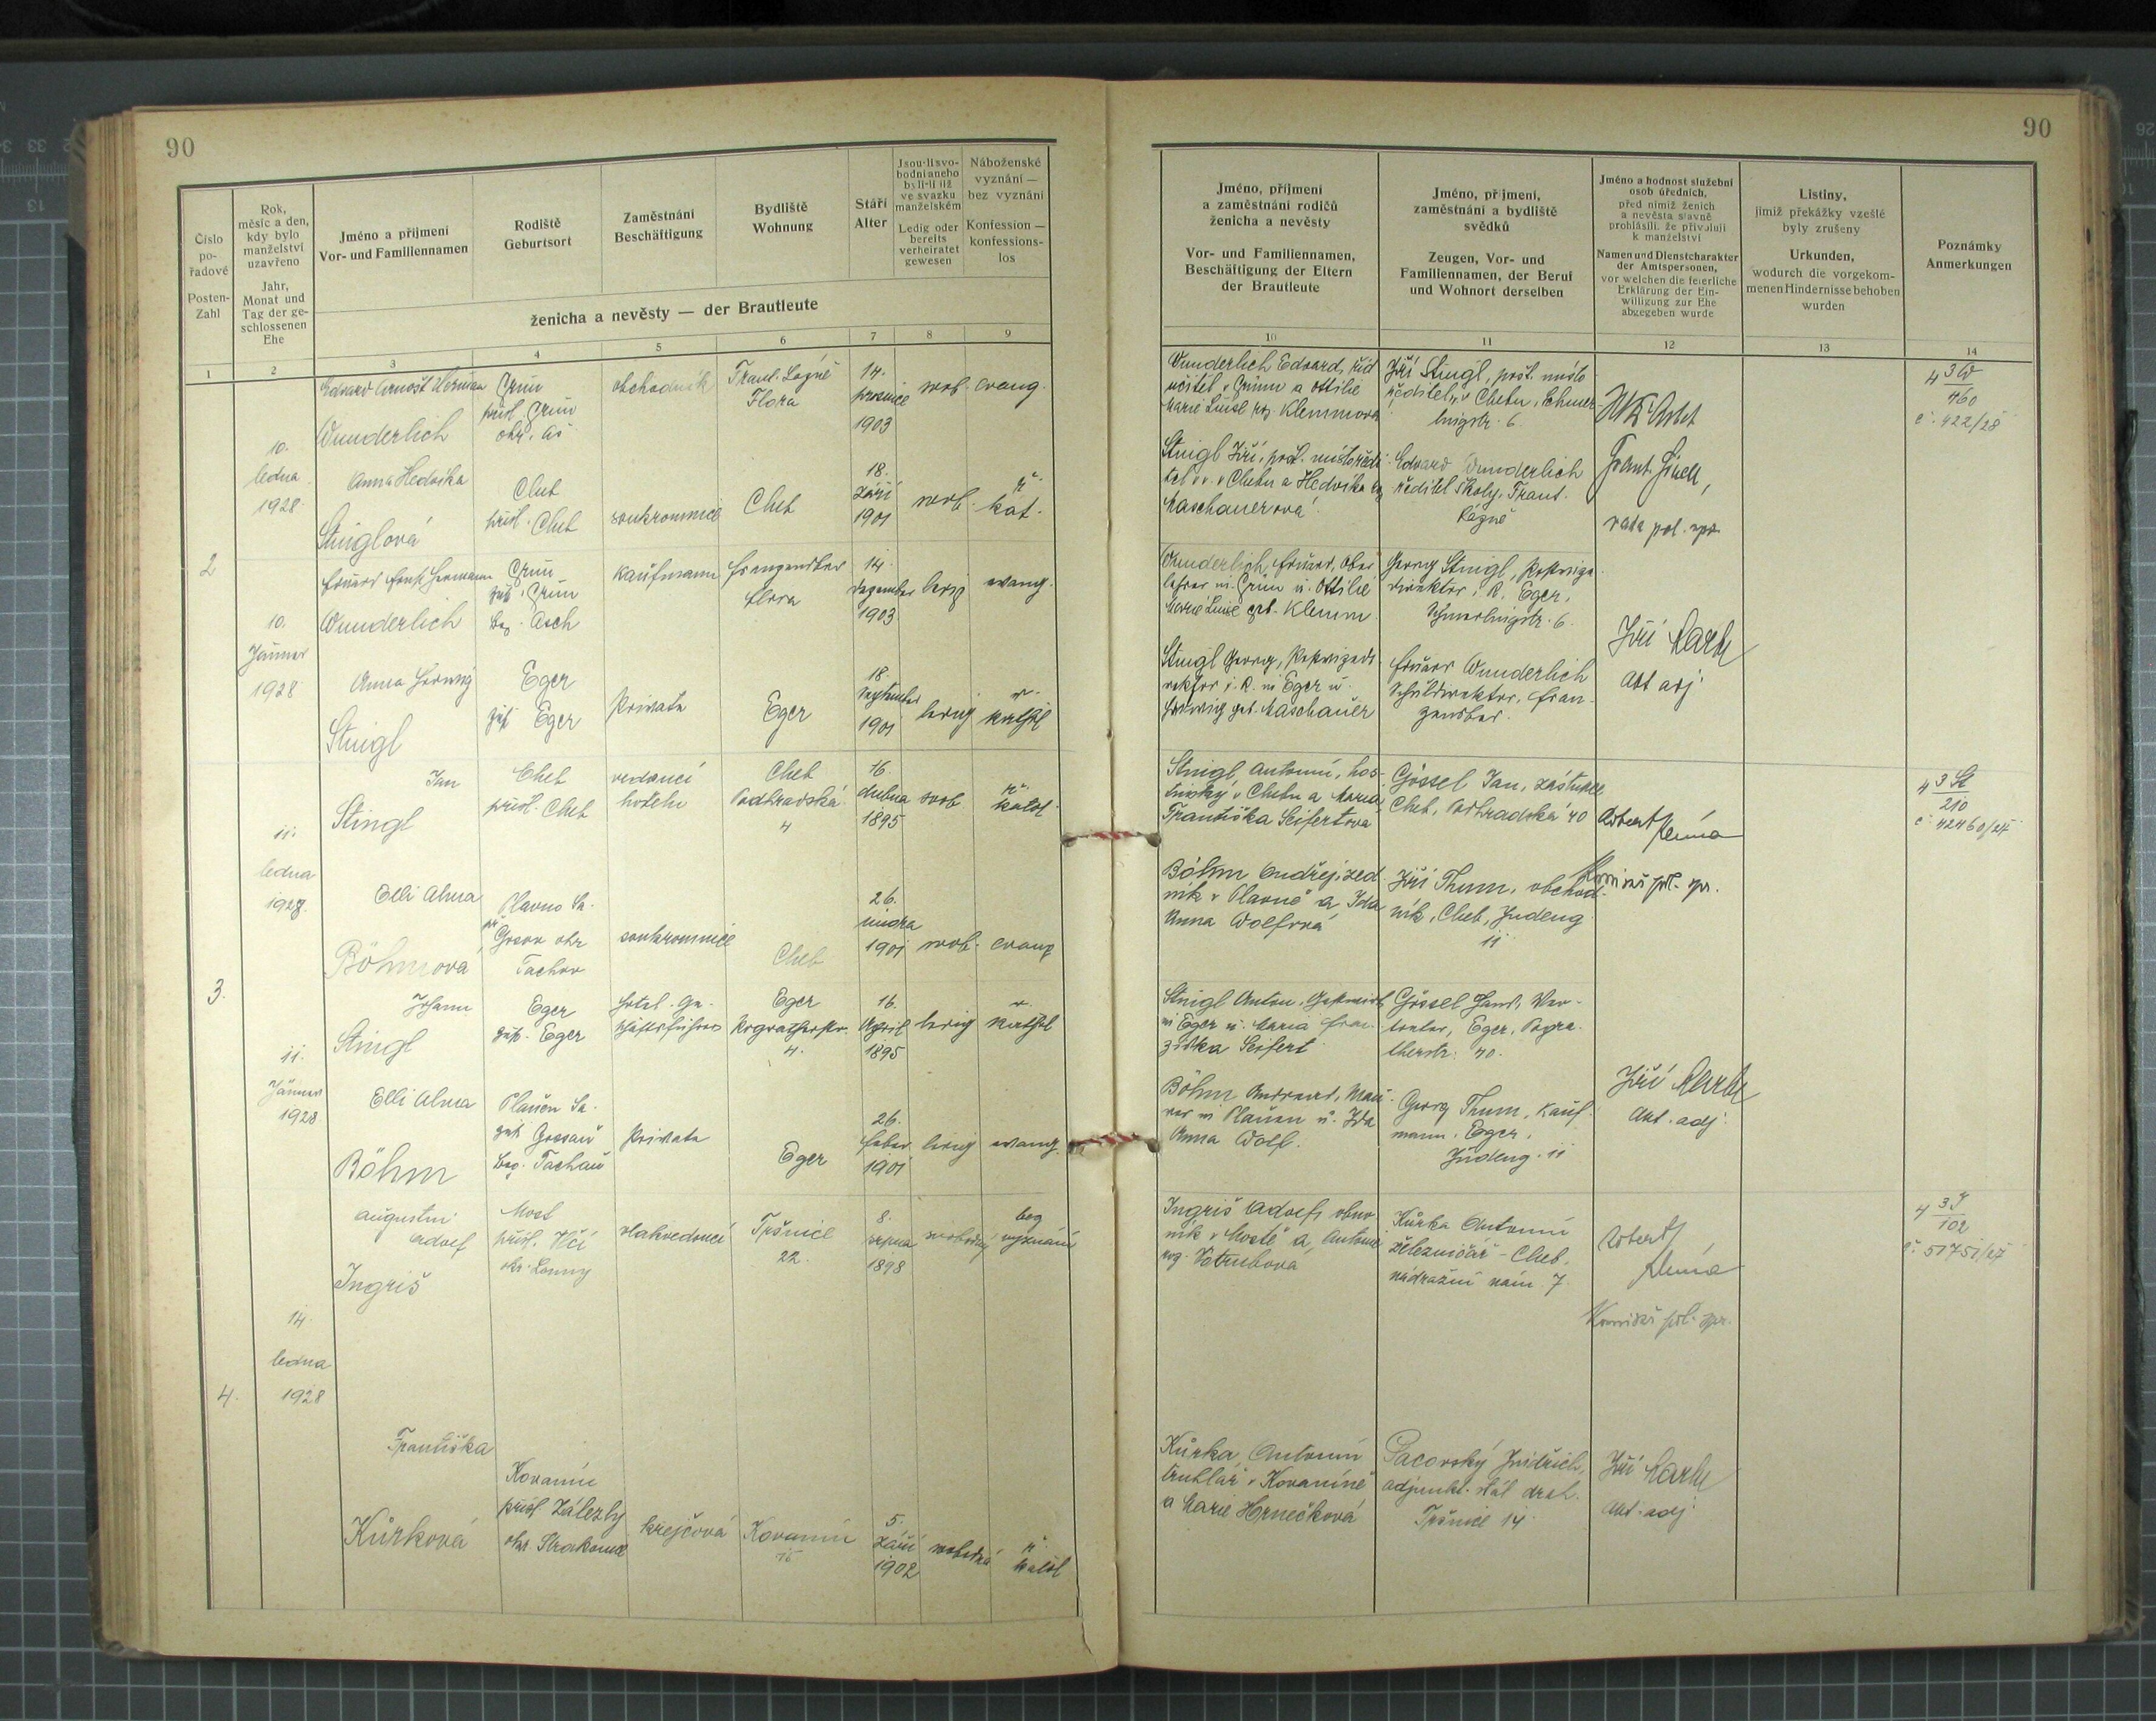 90
Číslo po-
řadové
Posten-
Zahl
Rok,
měsíc a den,
kdy bylo
manželství
uzavřeno
Jahr,
Monat und
Tag der ge-
schlossenen
Ehe
Jméno a příjmení
Vor- und Familiennamen
Rodiště
Geburtsort
Zaměstnání
Beschäftigung
Bydliště
Wohnung
Stáří
Alter
Jsou-li svo-
bodni anebo
byli-li již
ve svazku
manželském
Ledig oder
bereits
verheiratet
gewesen
Náboženské
vyznání —
bez vyznání
Konfession —
konfessions-
los
ženicha a nevěsty — der Brautleute
1 2 3 4 5 6 7 8 9
Edvard Arnošt Heřman
Wunderlich
Grün
přísl. Grün
okr. Aš
obchodník
Frant. Lázně
Flora
14.
prosince
1903
svob.
evang.
10.
ledna
1928.
Anna Hedvika
Stinglová
Cheb
přísl. Cheb
soukromnice
Cheb
18.
září
1901
svob.
ř.
kat.
2
10.
Jänner
1928
Eduard Ernst Hermann
Wunderlich
Grün
zust. Grün
Bez. Asch
Kaufmann
Franzensbad
Flora
14.
Dezember
1903
ledig
evang.
Anna Hedwig
Stingl
Eger
zust. Eger
Private
Eger
18.
September
1901
ledig
r.
kathol
Jan
Stingl
Cheb
přísl. Cheb
vedoucí
hotelu
Cheb
Podhradská
4
16.
dubna
1895
svob
ř.
katol.
11.
ledna
1928.
Elli Alma
Böhmová
Plavno Sa.
př. Gosov okr
Tachov
soukromnice
Cheb
26.
února
1901
svob.
evang
3.
11.
Jänner
1928
Johann
Stingl
Eger
zust. Eger
Hotel-Ge-
schäftsführer
Eger
Pogratherstr.
4.
16.
April
1895
ledig
r.
kathol
Elli Alma
Böhm
Plauen Sa.
zust. Gossau
Bez. Tachau
Private
Eger
26.
Feber
1901
ledig
evang.
Augustin
Adolf
Ingriš
Most
přísl. Vlčí
okr. Louny
vlakvedoucí
Tršnice
22.
8.
srpna
1898
svobodný
bez
vyznání
14.
ledna
1928
4.
Františka
Kůrková
Kovanín
přísl. Zálezly
okr. Strakonice
krejčová
Kovanín
15
5.
září
1902
svobodná
ř.
katol
90
Jméno, příjmení
a zaměstnání rodičů
ženicha a nevěsty
Vor- und Familiennamen,
Beschäftigung der Eltern
der Brautleute
Jméno, příjmení,
zaměstnání a bydliště
svědků
Zeugen, Vor- und
Familiennamen, der Beruf
und Wohnort derselben
Jméno a hodnost služební
osob úředních,
před nimiž ženich
a nevěsta slavně
prohlásili, že přivolují
k manželství
Namen und Dienstcharakter
der Amtspersonen,
vor welchen die feierliche
Erklärung der Ein-
willigung zur Ehe
abgegeben wurde
Listiny,
jimiž překážky vzešlé
byly zrušeny
Urkunden,
wodurch die vorgekom-
menen Hindernisse behoben
wurden
Poznámky
Anmerkungen
10 11 12 13 14
Wunderlich Edvard, říd
učitel v Grünu a Ottilie
Marie Luise roz. Klemmova
Jiří Stingl, pošt. místo
ředitel v. v. Chebu, Schmer-
lingstr. 6.
4 3W
460
č. 422/28
Stingl Jiří, pošt. místoředi
tel v. v. Chebu a Hedvika roz.
Maschauerová
Edvard Wunderlich
ředitel školy, Frant.
Lázně
rada pol. spr.
Wunderlich Eduard, Ober
lehrer in Grün u. Ottilie
Marie Luise geb. Klemm
Georg Stingl, Postvize-
direktor i. R. Eger,
Schmerlingstr. 6.
Jiří
Akt adj
Stingl Georg, Postvizedi-
rektor i. R. in Eger u.
Hedwig geb. Maschauer
Eduard Wunderlich
Schuldirektor, Fran-
zensbad.
Stingl Antonín, hos-
tinský v Chebu a Maria
Františka Seifertova
Gössel Jan, zástupce
Cheb, Podhradská 40
Robert
Komisař pol. spr.
4 3St
210
č. 42460/27
Böhm Ondřej, zed
ník v Plavně a Ida
Anna Wolfová
Jiří Thum, obchod-
ník, Cheb, Judeng
11
Stingl Anton, Gastwirt
in Eger u. Maria Fran-
ziska Seifert
Gössel Hans, Ver-
treter, Eger, Pogra-
therstr. 40.
Böhm Andreas, Mau-
rer in Plauen u. Ida
Anna Wolf.
Georg Thum, Kauf-
mann, Eger,
Judeng. 11
Jiří
Akt. adj.
Ingriš Adolf, obuv
ník v Mostě a Antonie
roz. Votrubova
Kůrka Antonín
železničář - Cheb,
nádražní nám. 7.
Robert
Komisař pol. spr.
4 3J
102
č. 51751/27
Kůrka Antonín
truhlář v Kovaníně
a Marie Hrnečková
Pacovský Jindřich,
adjunkt stát drah.
Tršnice 14
Jiří
Akt. adj